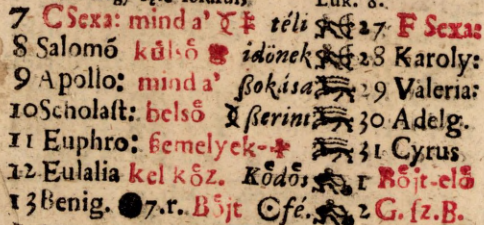 Luk. 8.
7 C Sexa: mind a' téli 27 F Sexa:
8 Salomó kúlsö idönek 28 Karoly:
9 Apollo: mind a' ßokása 29 Valeria:
10 Scholast: belsö ßerint 30 Adelg.
11 Euphro: ßemelyek- 31 Cyrus
12 Eulalia kel köz. Ködös 1 Böjt-elö
13 Benig. 7.r. Böjt fé. 2 G. ſz. B.